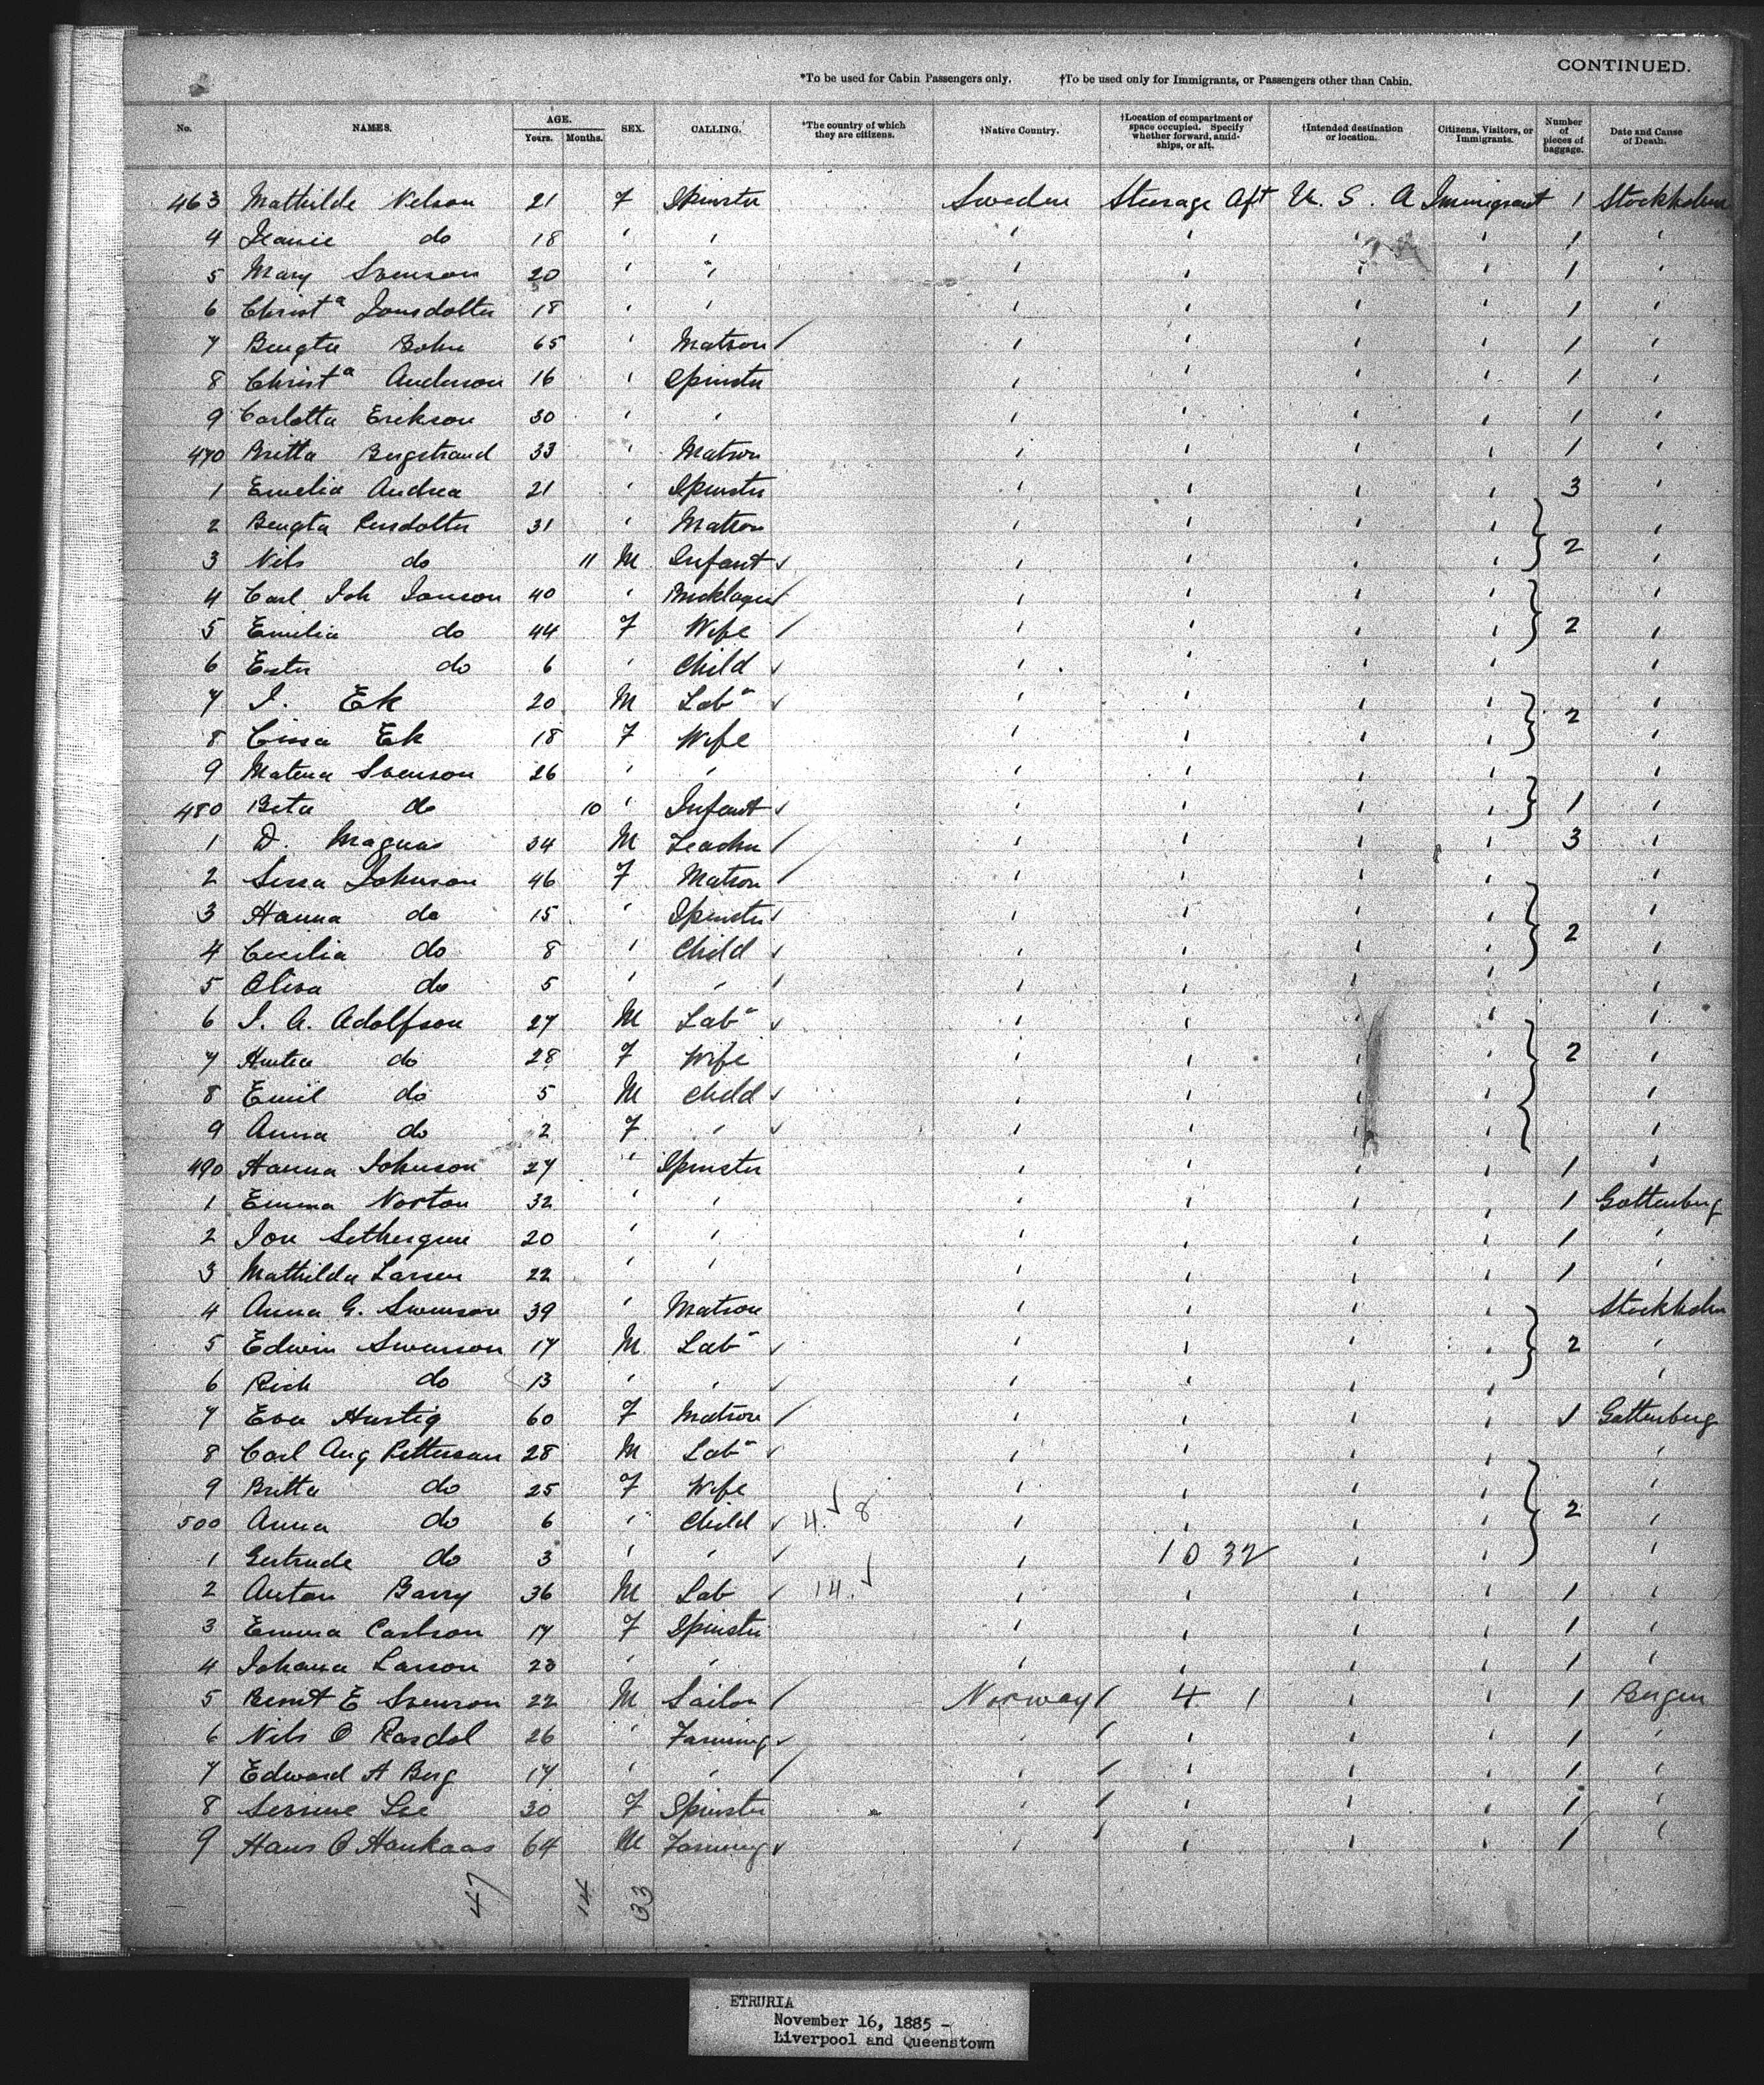 CONTINUED.
*To be used for Cabin Passengers only. †To be used only for Immigrants, or Passengers other than Cabin.
No. NAMES. AGE. Years. Months. SEX. CALLING. *The country of which they are citizens. †Native Country. †Location of compartment or space occupied. Specify whether forward, amidships, or aft. †Intended destination or location. Citizens, Visitors, or Immigrants. Number of pieces of baggage. Date and Cause of Death.
463 Mathilde Nelson 21 F Spinster Sweden Steerage Aft U. S. A Immigrant 1 Stockholm
4 do 18 ' ' ' ' ' ' 1 '
5 Mary Svenson 20 ' " ' ' ' ' 1 '
6 Christa Jonsdotter 18 ' ' ' ' ' ' 1 '
7 Bengta 65 ' Matron / ' ' ' ' 1 '
8 Christa Anderson 16 ' Spinster ' ' ' ' 1 '
9 Carlotta Erikson 30 ' ' ' ' ' ' 1 '
470 Britta Bergstrand 33 ' Matron ' ' ' ' 1 '
1 Emelia Andrea 21 ' Spinster ' ' ' ' 3 '
2 Bengta 31 ' Matron ' ' ' ' }
3 Nils do 11 M Infant ✓ ' ' ' ' 2 '
4 Carl Joh Janson 40 ' Bricklayer ' ' ' ' } '
5 Emilia do 44 F Wife / ' ' ' ' 2 '
6 Ester do 6 ' Child ✓ ' ' ' ' '
7 I. Ek 20 M Lab ✓ ' ' ' ' } 2 '
8 Ek 18 F Wife ' ' ' ' '
9 Matena Svenson 26 ' ' ' ' ' ' '
480 Beta do 10 ' Infant ✓ ' ' ' ' } 1 '
1 D. Magnus 34 M Teacher / ' ' ' ' 3 '
2 Sissa Johnson 46 F Matron / ' ' ' ' '
3 Hanna do 15 ' Spinster ' ' ' ' } '
4 Cecilia do 8 ' Child ✓ ' ' ' ' 2 '
5 Oliva do 5 ' ' ' ' ' ' '
6 I. A. Adolfson 27 M Lab ✓ ' ' ' ' '
7 do 28 F Wife ' ' ' ' } 2 '
8 Emil do 5 M Child ✓ ' ' ' ' '
9 Anna do 2 F ' ✓ ' ' ' ' '
490 Hanna Johnson 27 ' Spinster ' ' ' ' 1 '
1 Emma Norton 32 ' ' ' ' ' ' 1 Gottenburg
2 20 ' ' ' ' ' ' 1 '
3 Mathilda Larsen 22 ' ' ' ' ' ' 1 '
4 Anna G. Swenson 39 ' Matron ' ' ' ' Stockholm
5 Edwin Swenson 17 M Lab ✓ ' ' ' ' } 2 '
6 Rich do 13 ' ' ✓ ' ' ' ' '
7 Eva Hurtig 60 F Matron / ' ' ' ' 1 Gottenburg
8 Carl Aug Petterson 28 M Lab ✓ ' ' ' ' '
9 Britta do 25 F Wife ' ' ' ' } '
500 Anna do 6 ' Child ✓ 4 ✓ 8 ' ' ' ' 2 '
1 Gertrude do 3 ' ' ✓ ' 10 32 ' ' '
2 Anton Barry 36 M Lab ✓ 14 ✓ ' ' ' ' 1 '
3 Emma Carlson 17 F Spinster ' ' ' ' 1 '
4 Johana Larson 23 ' ' ' ' ' ' 1 '
5 E Svenson 22 M Sailor / Norway / 4 1 ' ' 1 Bergen
6 Nils O Rasdal 26 ' Farming ✓ ' / ' ' ' 1 '
7 Edward A Berg 17 ' ' / ' / ' ' ' 1 '
8 Lee 30 F Spinster ' / ' ' ' 1 '
9 Hans O Haukaas 64 M Farming ✓ ' / ' ' ' 1 '
47 14 33
ETRURIA
November 16, 1885 -
Liverpool and Queenstown